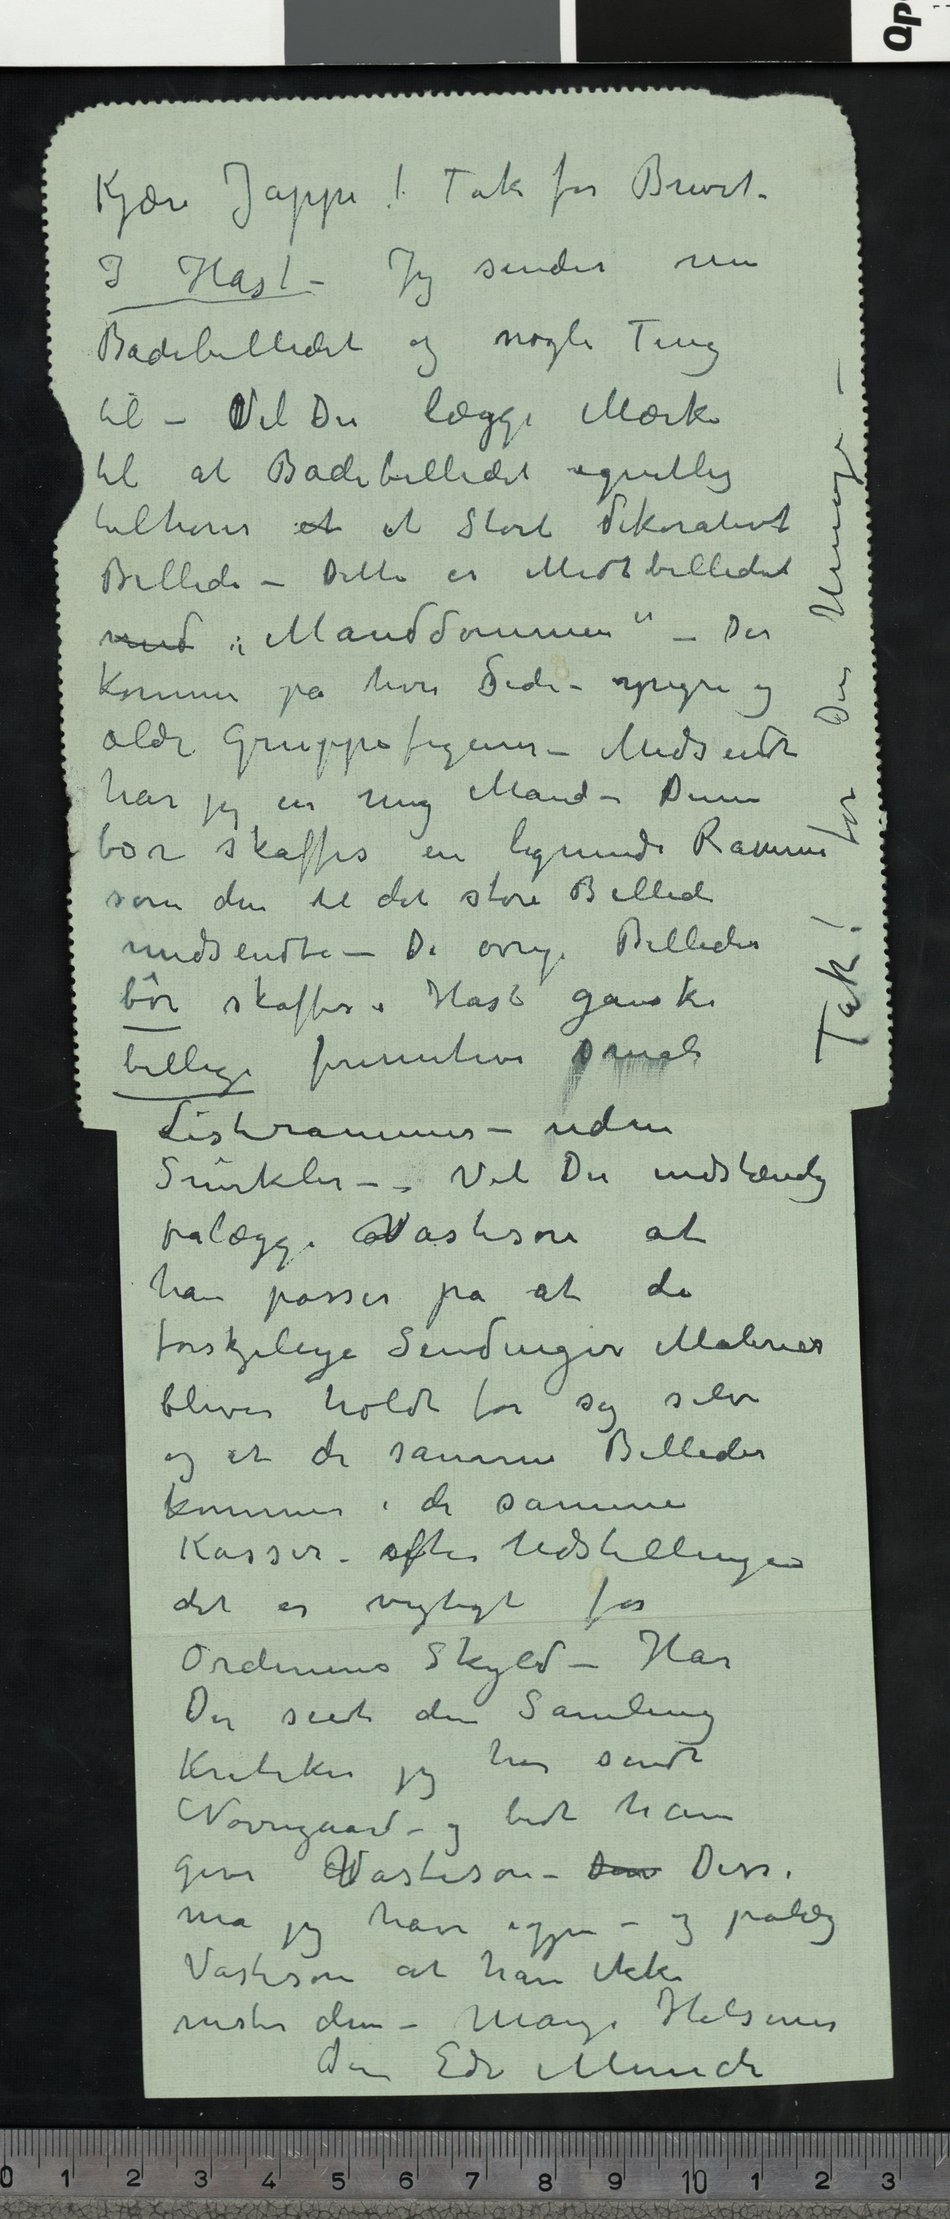 Kjære Jappe! Tak for Brevet.
I Hast – Jeg sender nu
Badebilledet og nogle Ting
til – Vil Du lægge Mærke
til at Badebilledet egentlig
tilhører et et Stort dekorativt
Billede – Dette er Midtbilledet
med „Manddommen" – Der
kommer på hver Side – yngre og
ældre Gruppefigurer – Medsendt
har jeg en ung Mand – Denne
bør skaffes en lignende Ramme
som den til det store Billede
medsendte – De øvrige Billeder
bør skaffes i Hast ganske
billige primitive smale
Listerammer – uden
Snirkler – – Vil Du indstændig
pålægge Vastesen at
han passer på at de
forskjelige Sendinger Malerier
bliver holdt for sig selv
og at de samme Billeder
kommer i de samme
Kasser – efter Udstillingen
det er vigtigt for
Ordenens Skyld – Har
Du seet den Samling
Kritiker jeg har sendt
Nørregaard – og bedt ham
give Vastesen – Den Disse
må jeg have igjen – og pålæg
Vastesen at han ikke
mister dem – Mange Hilsener
Din Edv Munch
Tak! for Din Umage –
0 1 2 3 4 5 6 7 8 9 10 1 2 3